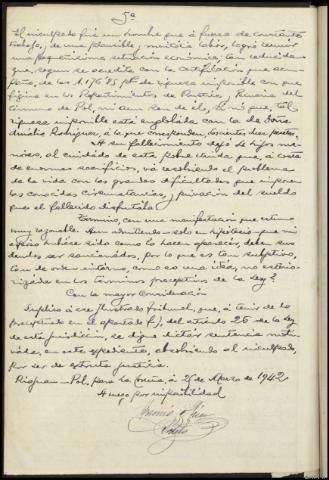 5ª
El inculpado fué un hombre que á fuerza de constante
trabajo, de una plausible, meritoria labor, logró reunir
una pequeñísima situación económica, tan reducida
que, segun se acredita con la certificación que acom-
paño, de las 1.176'85 pts de riqueza imponible con que
figura en los Repartimientos de Rústica, Pecuaria del
de Pol, ni aun son de él, lo más que, tal
riqueza imponible está englobada con la de Doña
Rodriguez, á la que corresponden, doscientas diez pesetas.
A su fallecimiento dejó de hijos me-
nores, al cuidado de esta pobre viuda que, á costa
de enormes sacrificios, va resolviendo el problema
de la vida con las grandes dificultades que imponen
las conocidas circunstancias, y privación del sueldo
que el fallecido disfrutaba.
Termino, con una manifestación que estimo
muy razonable. Aun admitiendo-solo en hipótesis-que mi
esposo hubiese sido como lo hacen aparecer, deben sus
deudos ser sancionados, por lo que es tan subjetivo,
tan de orden interno, como es una idea, no exterio-
rizada en los términos preceptivos de la Ley?
Con la mayor Consideración
Suplico á ese Ilustre Tribunal, que, á tenor de lo
preceptuado en el apartado f), del artículo 26 de la ley
de esta jurisdición, se digne dictar sentencia moti-
vada, en este expediente, absolviendo al inculpado,
por ser de estricta justicia.
Pol, para la Coruña, á 25 de Marzo de 1942
A ruego por imposibilidad